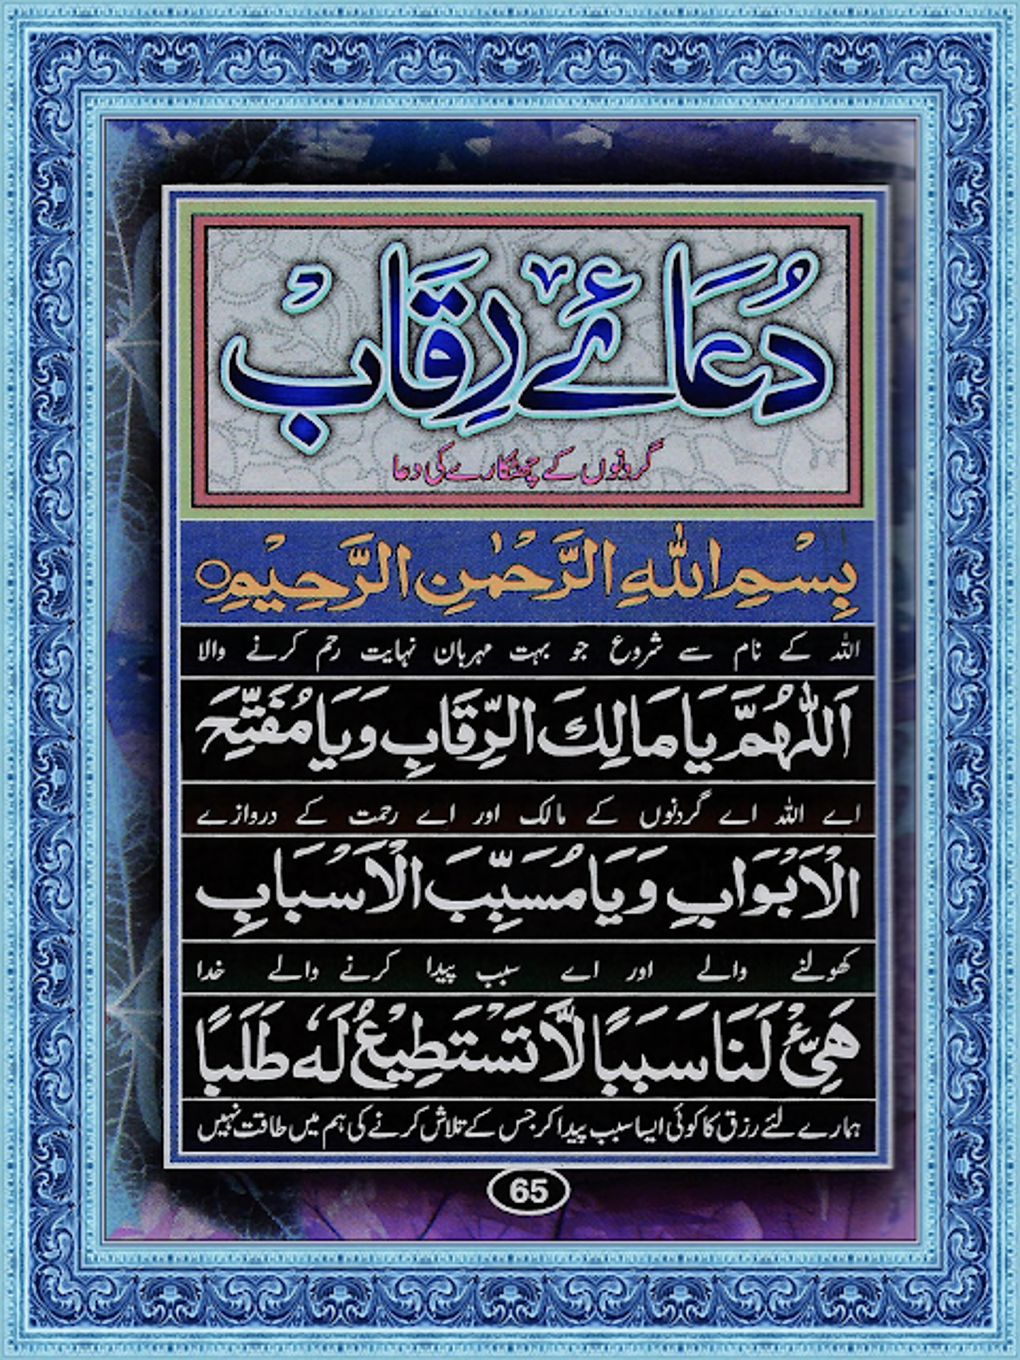 دُعَائے رِقَابْ
گردنوں کے چھٹکارے کی دعا
بِسْمِ اللهِ الرَّحْمٰنِ الرَّحِيْمِ○
اللہ کے نام سے شروع جو بہت مہربان نہایت رحم کرنے والا
اَللّٰهُمَّ يَا مَالِكَ الرِّقَابِ وَيَا مُفَتِّحَ
اے اللہ اے گردنوں کے مالک اور اے رحمت کے دروازے
الْاَبْوَابِ وَيَا مُسَبِّبَ الْاَسْبَابِ
کھولنے والے اور اے سبب پیدا کرنے والے خدا
هَيِّئْ لَنَا سَبَبًا لَّا تَسْتَطِيْعُ لَهٗ طَلَبًا
ہمارے لئے رزق کا کوئی ایسا سبب پیدا کر جس کے تلاش کرنے کی ہم میں طاقت نہیں
65